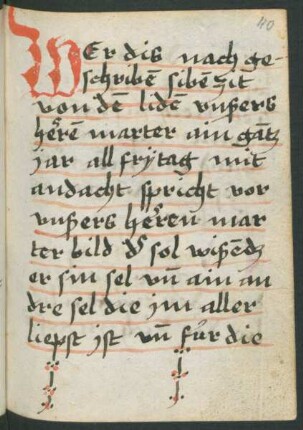 40
WEr dis nach ge-
schribē sibē zit
von dē lidē vnßers
herrē marter ain gātz
jar all frytag mit
andacht spricht vor
vnßers herren mar
ter bild ds sol wißē dz
er sin sel vn̄ ain an
dre sel die jm aller
liepst jst vn̄ für die